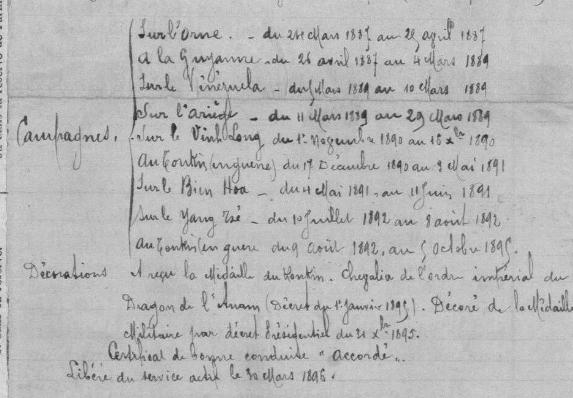 Sur l'Orne. - du 24 Mars 1887 au 25 avril 1887
A la Guyanne - du 26 avril 1887 au 4 Mars 1889
Sur le Vénézuela - du 5 Mars 1889 au 10 Mars 1889
Sur l'Ariège - du 11 Mars 1889 au 29 Mars 1889
Campagnes. Sur le Vinh Long du 1er Novembre 1890 au 16 Xbre 1890
Au Tonkin (en guerre) du 17 Décembre 1890 au 3 Mai 1891
Sur le Bien Hoa - du 4 Mai 1891 au 11 Juin 1891
Sur le Yang Tsé - du 10 Juillet 1892 au 8 août 1892
Au Tonkin (en guerre du 9 août 1892, au 5 Octobre 1895.
Décorations A reçu la Médaille du Tonkin. Chevalier de l'ordre impérial du
Dragon de l'Anam (Décret du 1er Janvier 1895). Décoré de la Médaille
Militaire par décret Présidentiel du 21 Xbre 1895.
Certificat de bonne conduite "accordé"
Libéré du service actif le 30 Mars 1896.